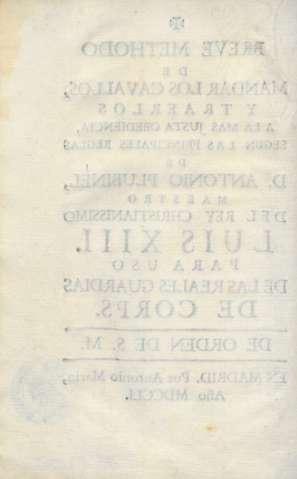 ✠
BREVE METHODO
DE
MANDAR LOS CAVALLOS,
Y TRAERLOS
A LA MAS JUSTA OBEDIENCIA,
SEGUN LAS PRINCIPALES REGLAS
DE
D. ANTONIO PLUBINEL,
MAESTRO
DEL REY CHRISTIANISSIMO
LUIS XIII.
PARA USO
DE LAS REALES GUARDIAS
DE CORPS.
DE ORDEN DE S. M.
EN MADRID. Por Antonio Marin,
Año MDCCLI.